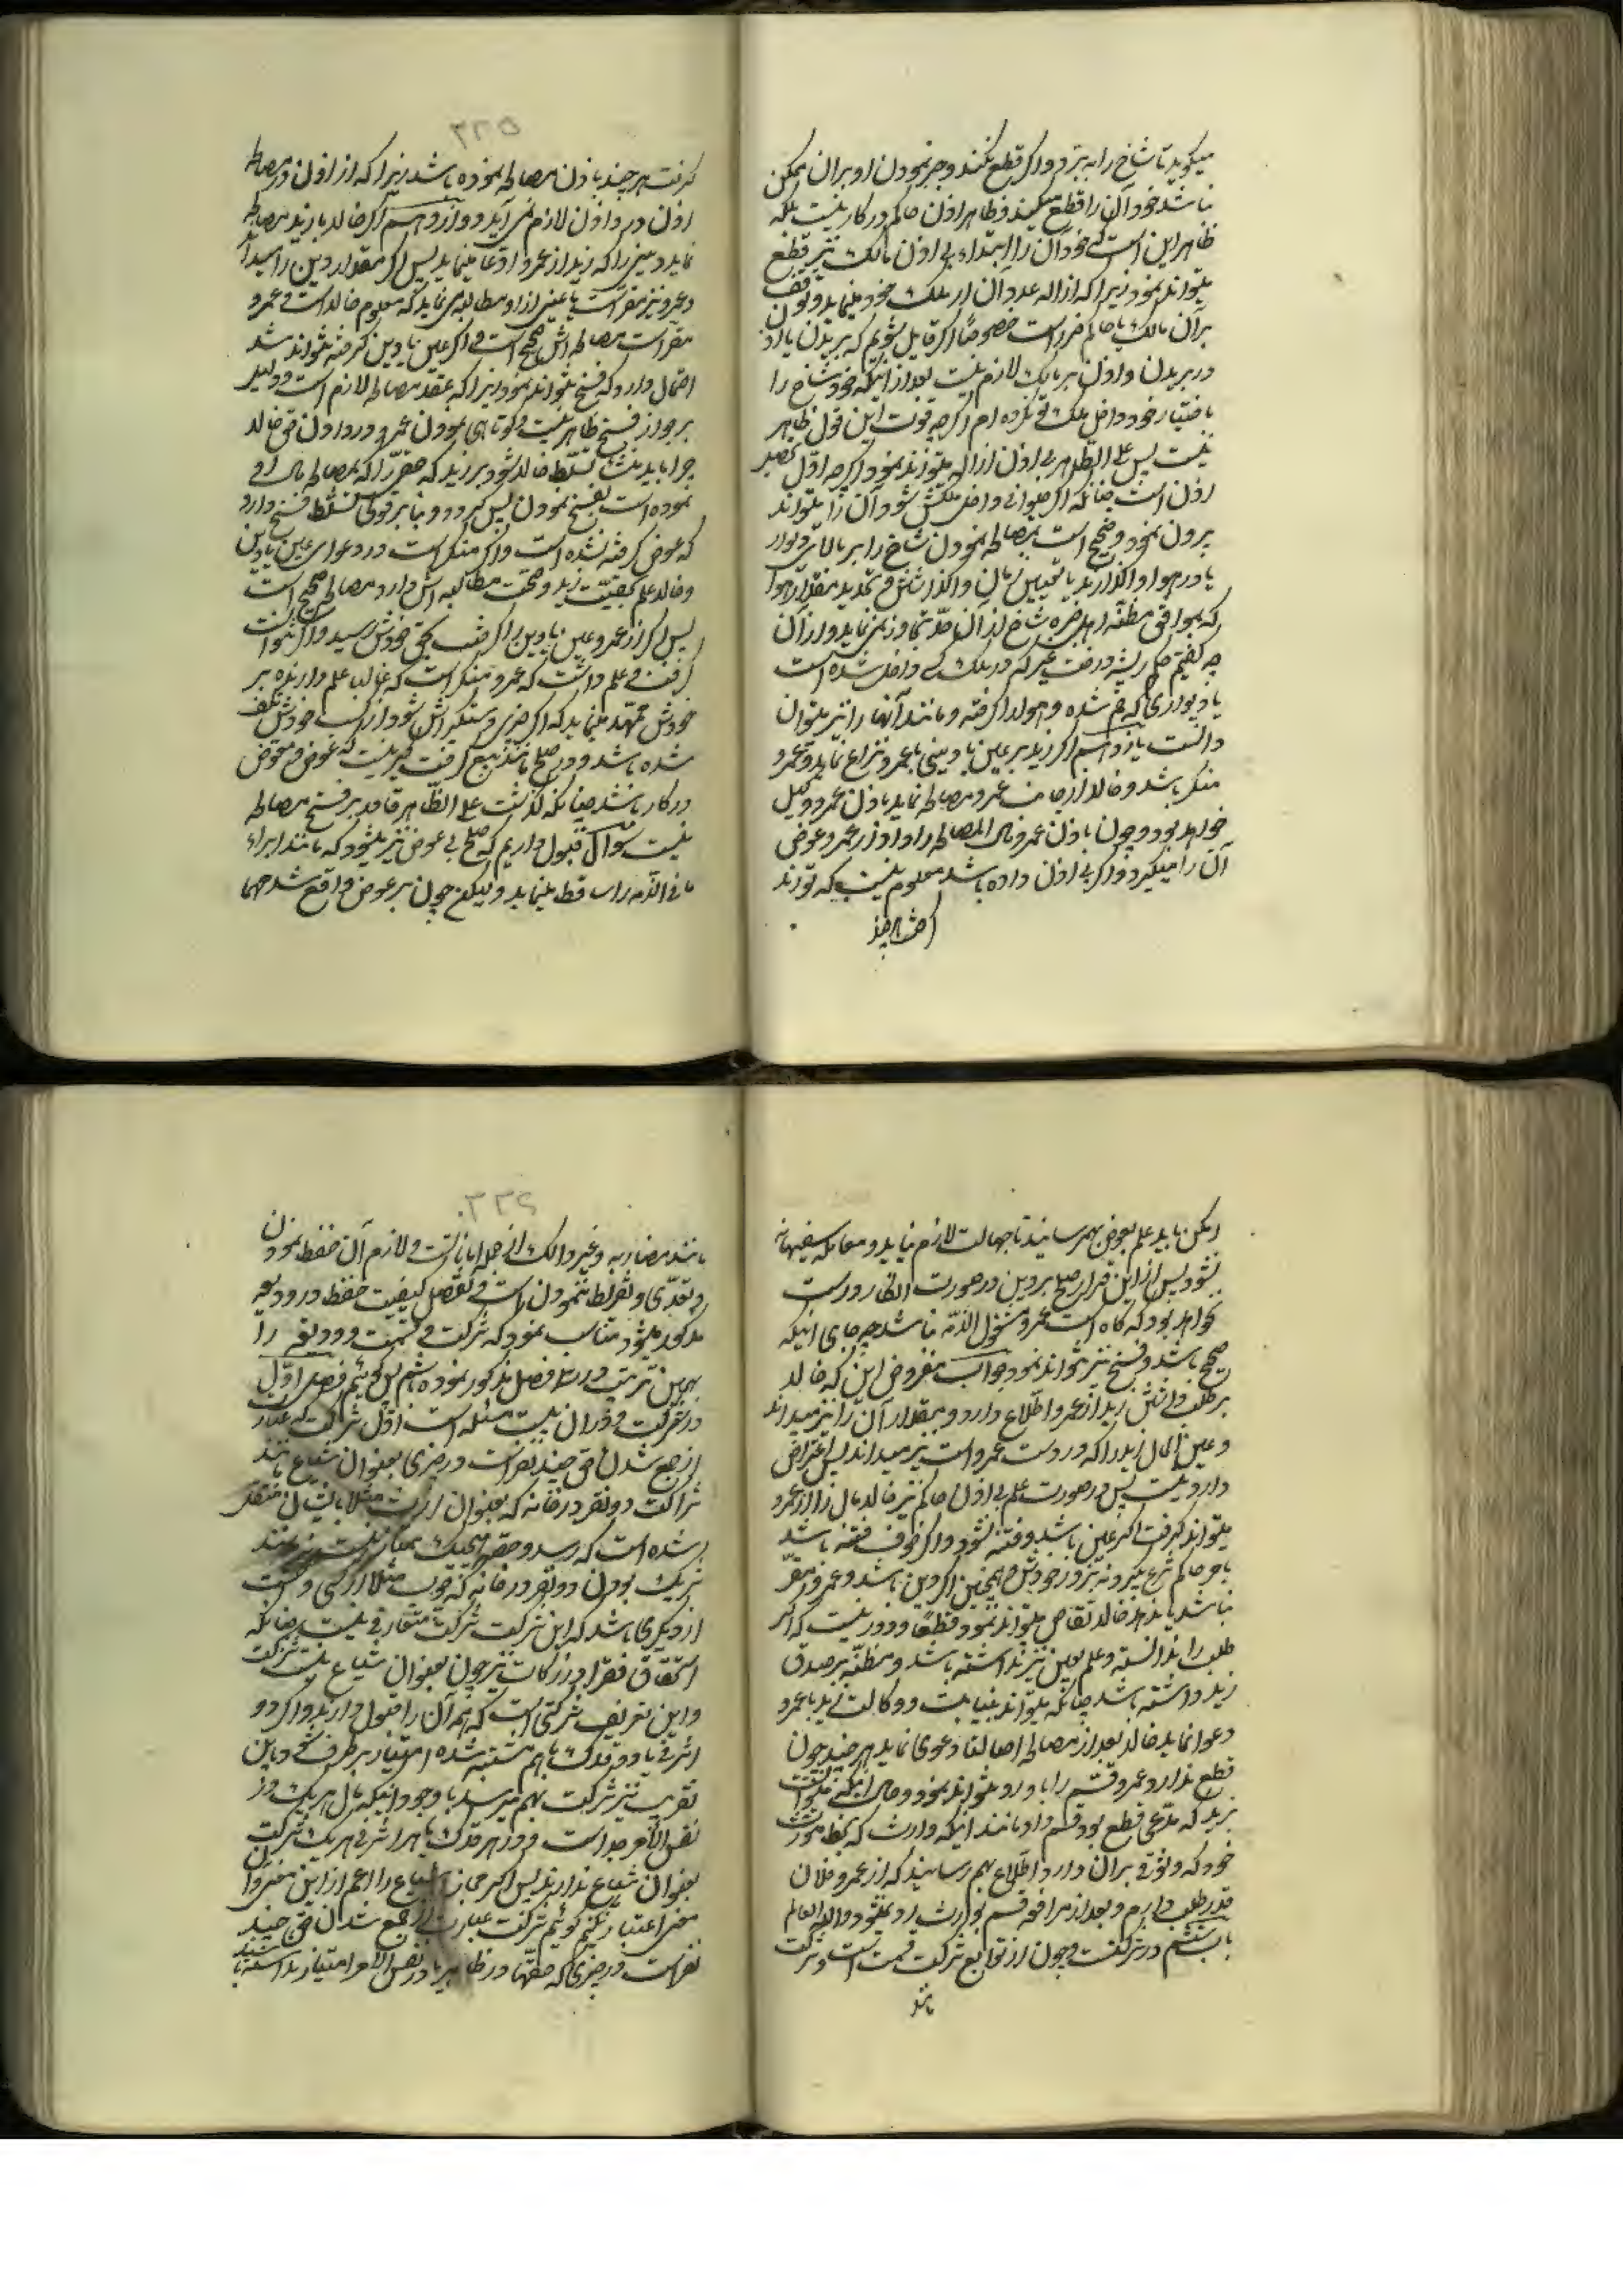 میگوید تا شاخ را به برد و اگر قطع نکند و جبر نمودن او بر آن ممکن
نباشد خود آن را قطع میکند و ظاهرا اذن حاکم در کار نیست بلکه
ظاهر این است که خود آن را ابتداء بی اذن مالک نیز قطع
میتواند نمود زیرا که ازاله عدوان از ملک خود مینماید و توقف
بر آن مالک یا حاکم ضرر است خصوصا اگر قایل شویم که بریدن یا اذن
در بریدن دادن بر مالک لازم نیست بعد از اینکه خود شاخ را
باختیار خود داخل ملک تو نکرده ام اگرچه قوت این قول ظاهر
نیست پس علی الظاهر بی اذن ازاله میتواند نمود اگرچه اول تحصیل
اذن است چنانکه اگر حیوانی داخل ملکش شود آن را میتواند
بیرون نمود و صحیح است مصالحه نمودن شاخ را بر بالای دیوار
یا در هوا واگذارند با تعیین زمان واگذاشتن و تحدید مقدار هوا
که موافق مظنه اهل خبره شاخ از آن حد تجاوز نمینماید و از آن
چه گفتیم حکم ریشه درخت غیر که در ملک کسی داخل شده است
یا دیواری که خم شده و هوا را گرفته و مانند آنها را نیز میتوان
دانست یازدهم اگر زید بر عین یا دینی با عمرو نزاع نماید و عمرو
منکر باشد و خالد از جانب عمرو مصالحه نماید باذن عمرو وکیل
خواهد بود و چون باذن عمرو مال المصالحه را داد از عمرو عوض
آن را میگیرد و اگر بی اذن داده باشد معلوم نیست که تواند
گرفت هر چند
گرفت هر چند باذن مصالحه نموده باشد زیرا که از اذن در مصالحه
اذن در دادن لازم نمی آید دوازدهم اگر خالد با زید مصالحه
نماید دینی را که زید از عمرو ادعا مینماید پس اگر مقدار دین را میداند
و عمرو نیز مقر است یا عینی از او مطالبه می نماید که معلوم خالد است و عمرو
مقر است مصالحه اش صحیح است و اگر عین یا دین گرفته نتواند شد
احتمال دارد که فسخ نتواند نمود زیرا که عقد مصالحه لازم است و دلیل
بر جواز فسخ ظاهر نیست و کوتاهی نمودن عمرو در دادن حق خالد
چرا باید منشاء تسلط خالد شود بر زید که حقی را که بمصالحه مال او
نموده است بفسخ نمودن پس گیرد و بنا بر قولی تسلط فسخ دارد
که عوض گرفته نشده است و اگر منکر است در دعوای عین یا دین
و خالد علم بحقیت زید و صحت مطالبه اش دارد مصالحه صحیح است
پس اگر از عمرو عین یا دین را گرفت بحق خودش رسید و اگر نتوانست
گرفت و علم داشت که عمرو منکر است که غالب علم دارند بر
خودش تمهید مینماید که اگر چیزی دستگیر اش شود از کسب خودش تلف
شده باشد و در صلح مانند بیع گرفت گیر نیست که عوض و معوض
در کار باشد چنانکه گذشت علی الظاهر قادر بر فسخ مصالحه
نیست سؤال قبول داریم که صلح بی عوض نیز میشود که مانند ابراء
ما فی الذمه را ساقط مینماید و لیکن چون بر عوض واقع شد حکما
لیکن باید علم بعوض بهم رسانید تا جهالت لازم نیاید و معامله سفیهانه
نشود پس از این قرار صلح بر دین در صورت انکار درست
نخواهد بود که گاه است عمرو مشغول الذمه نباشد چه جای اینکه
صحیح باشد و فسخ نیز نتواند نمود جواب مفروض این که خالد
بر طلب داشتن زید از عمرو اطلاع دارد و مقدار آن را نیز میداند
و عین المال زید را که در دست عمرو است نیز میداند پس اعتراض
وارد نیست پس در صورت علم بی اذن حاکم نیز خالد مال را از عمرو
میتواند گرفت اگر عین باشد و فتنه نشود و اگر خوف فتنه باشد
با جبر حاکم شرع میگیرد نه بزور خودش و همچنین اگر دین باشد و عمرو مقر
نباشد یا ندهد خالد تقاص میتواند نمود قطعا و دور نیست که اگر
طلب را ندانسته و علم بعین نیز نداشته باشد و مظنه بر صدق
زید داشته باشد چنانکه میتواند بنیابت و وکالت زید با عمرو
دعوا نماید خالد بعد از مصالحه اصالتا دعوی نماید هر چند چون
قطع ندارد عمرو قسم را باو رد نتواند نمود و حال اینکه میتوانست
بزید که مدعی قطع بود قسم داد مانند اینکه وارث که بخط مورث
خود که وثوق بر آن دارد اطلاع بهم رسانید که از عمرو فلان
قدر طلب دارم و بعد از مرافعه قسم بوارث رد نمیشود والله العالم
باب ششم در شرکت و چون از توابع شرکت قسمت است و شرکت
مانند
مانند مضاربه و غیر ذالک فی الجمله امانت است و لازم آن حفظ نمودن
و تعدی و تفریط ننمودن است و تفصیل کیفیت حفظ در ودیعه
مذکور میشود مناسب نمود که شرکت و قسمت و ودیعه را
بهمین ترتیب در سه فصل مذکور نموده باشم پس گوئیم فصل اول
در شرکت و در آن بیست مسئله است اول شرکت که عبارت
از جمع شدن حق چند نفر است در چیزی بعنوان شیاع مانند
شراکت دو نفر در خانه که بعنوان ارث مثلا بایشان منتقل
شده است که رسد و حصه هیچیک بمعین نیست نه مانند
شریک بودن دو نفر در خانه که چوب مثلا از کسی و خشت
از دیگری باشد که این شرکت شرکت متعارف نیست چنانکه
استحقاق فقرا در زکات نیز چون بعنوان شیاع نیست شرکت
و این تعریف شرکتی است که همه آن را قبول دارند و اگر دو
اشرفی یا دو قدک باهم مشتبه شده امتیاز بر طرف شد و باین
تقریب نیز شرکت بهم میرسد با وجود اینکه مال هر یک در
نفس الامر جدا است و در هر قدک یا هر اشرفی هر یک شرکت
بعنوان شیاع ندارند پس اگر مجازا شیاع را اعم از این معنی و آن
معنی اعتبار نکنیم گوئیم شرکت عبارت از جمع شدن حق چند
نفر است در چیزی که حصها در ظاهر یا در نفس الامر امتیاز نداشته باشند